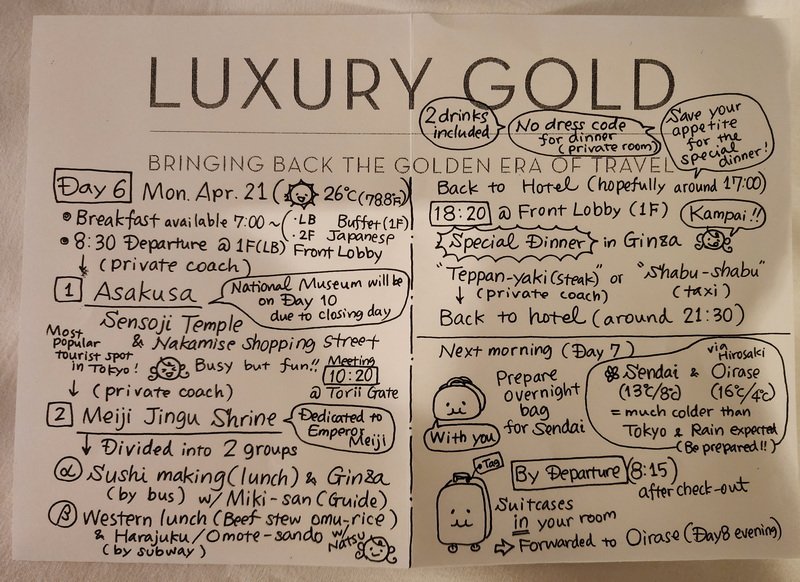 LUXURY GOLD
BRINGING BACK THE GOLDEN ERA OF TRAVEL
Day 6 Mon. Apr. 21 (26℃ (78.8℉)
• Breakfast available 7:00~ (・LB Buffet (1F)
・2F Japanese
• 8:30 Departure @ 1F(LB) Front Lobby
↓ (private coach)
1 Asakusa
National Museum will be
on Day 10
due to closing day
Sensoji Temple
& Nakamise Shopping Street
Most
popular
tourist spot
in Tokyo!
Busy but fun!!
Meeting
10:20
@ Torii Gate
↓ (private coach)
2 Meiji Jingu Shrine
Dedicated to
Emperor
Meiji
↓ Divided into 2 groups
α Sushi making (lunch) & Ginza
(by bus) w/ Miki-san (Guide)
β Western lunch (Beef stew omu-rice)
& Harajuku/Omote-sando w/ Natsu
(by subway)
2 drinks
included
No dress code
for dinner
(private room)
Save your
appetite
for the
special
dinner!
Back to Hotel (hopefully around 17:00)
18:20 @ Front Lobby (1F)
Kampai!!
Special Dinner in Ginza
"Teppan-yaki (steak)" or "Shabu-shabu"
↓ (private coach) (taxi)
Back to hotel (around 21:30)
Next morning (Day 7)
With you
Prepare
overnight
bag
for Sendai
via
Hirosaki
Sendai & Oirase
(13℃/8℃) (16℃/4℃)
= much colder than
Tokyo & Rain expected
(Be prepared!!)
Tag
By Departure (8:15)
after check-out
Suitcases
in your room
⇨ Forwarded to Oirase (Day8 evening)